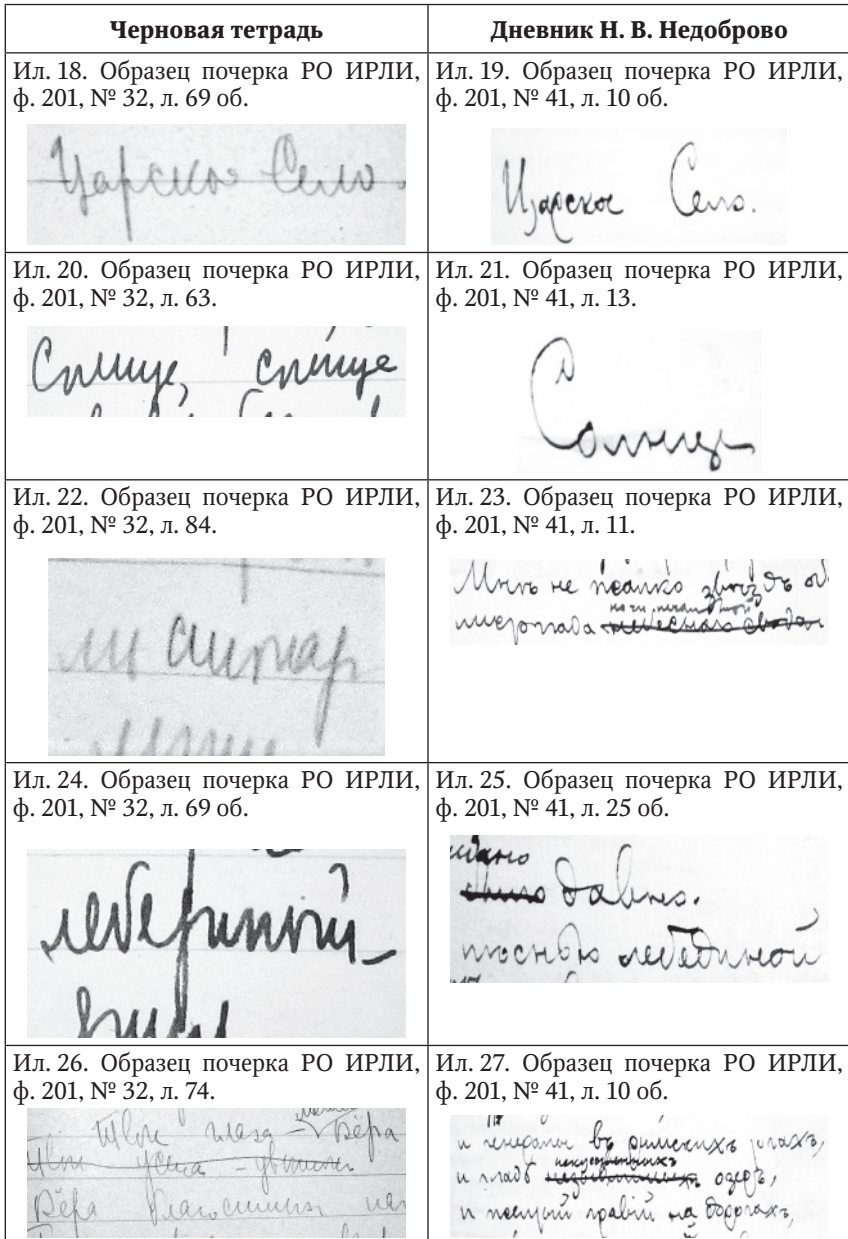 Черновая тетрадь
Дневник Н. В. Недоброво
Ил. 18. Образец почерка РО ИРЛИ,
ф. 201, № 32, л. 69 об.
Царское Село.
Ил. 19. Образец почерка РО ИРЛИ,
ф. 201, № 41, л. 10 об.
Царское Село.
Ил. 20. Образец почерка РО ИРЛИ,
ф. 201, № 32, л. 63.
Солнце, солнце
Ил. 21. Образец почерка РО ИРЛИ,
ф. 201, № 41, л. 13.
Солнце
Ил. 22. Образец почерка РО ИРЛИ,
ф. 201, № 32, л. 84.
Ил. 23. Образец почерка РО ИРЛИ,
ф. 201, № 41, л. 11.
Мнѣ не жалко звѣздъ
небеснаго свода
Ил. 24. Образец почерка РО ИРЛИ,
ф. 201, № 32, л. 69 об.
Ил. 25. Образец почерка РО ИРЛИ,
ф. 201, № 41, л. 25 об.
давно.
пѣснью лебединой
Ил. 26. Образец почерка РО ИРЛИ,
ф. 201, № 32, л. 74.
Твои глаза – Вера
Твои уста –
Вера
Ил. 27. Образец почерка РО ИРЛИ,
ф. 201, № 41, л. 10 об.
и въ римскихъ тогахъ,
искусственныхъ
и гладь озеръ,
и желтый гравій на дорогахъ,